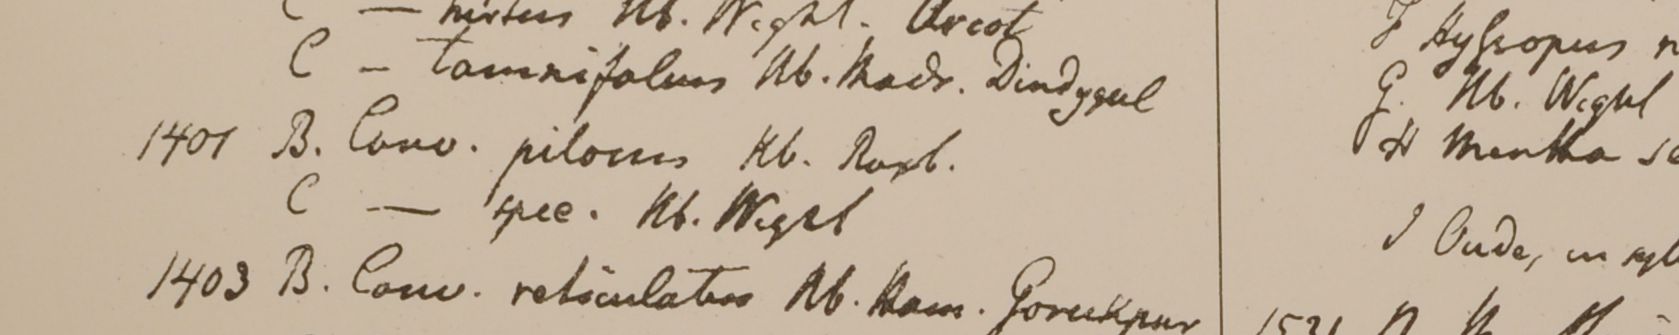 C — hirtus Hb. Wight. Arcot
C — tamnifolius Hb. Madr. Dindygul
1401 B. Conv. pilosus Hb. Roxb.
C — spec. Hb. Wight
1403 B. Conv. reticulatus Hb. Ham. Gorukpur
F Hyssopus
G. Hb. Wight
H Mentha
I Oude, in
1531